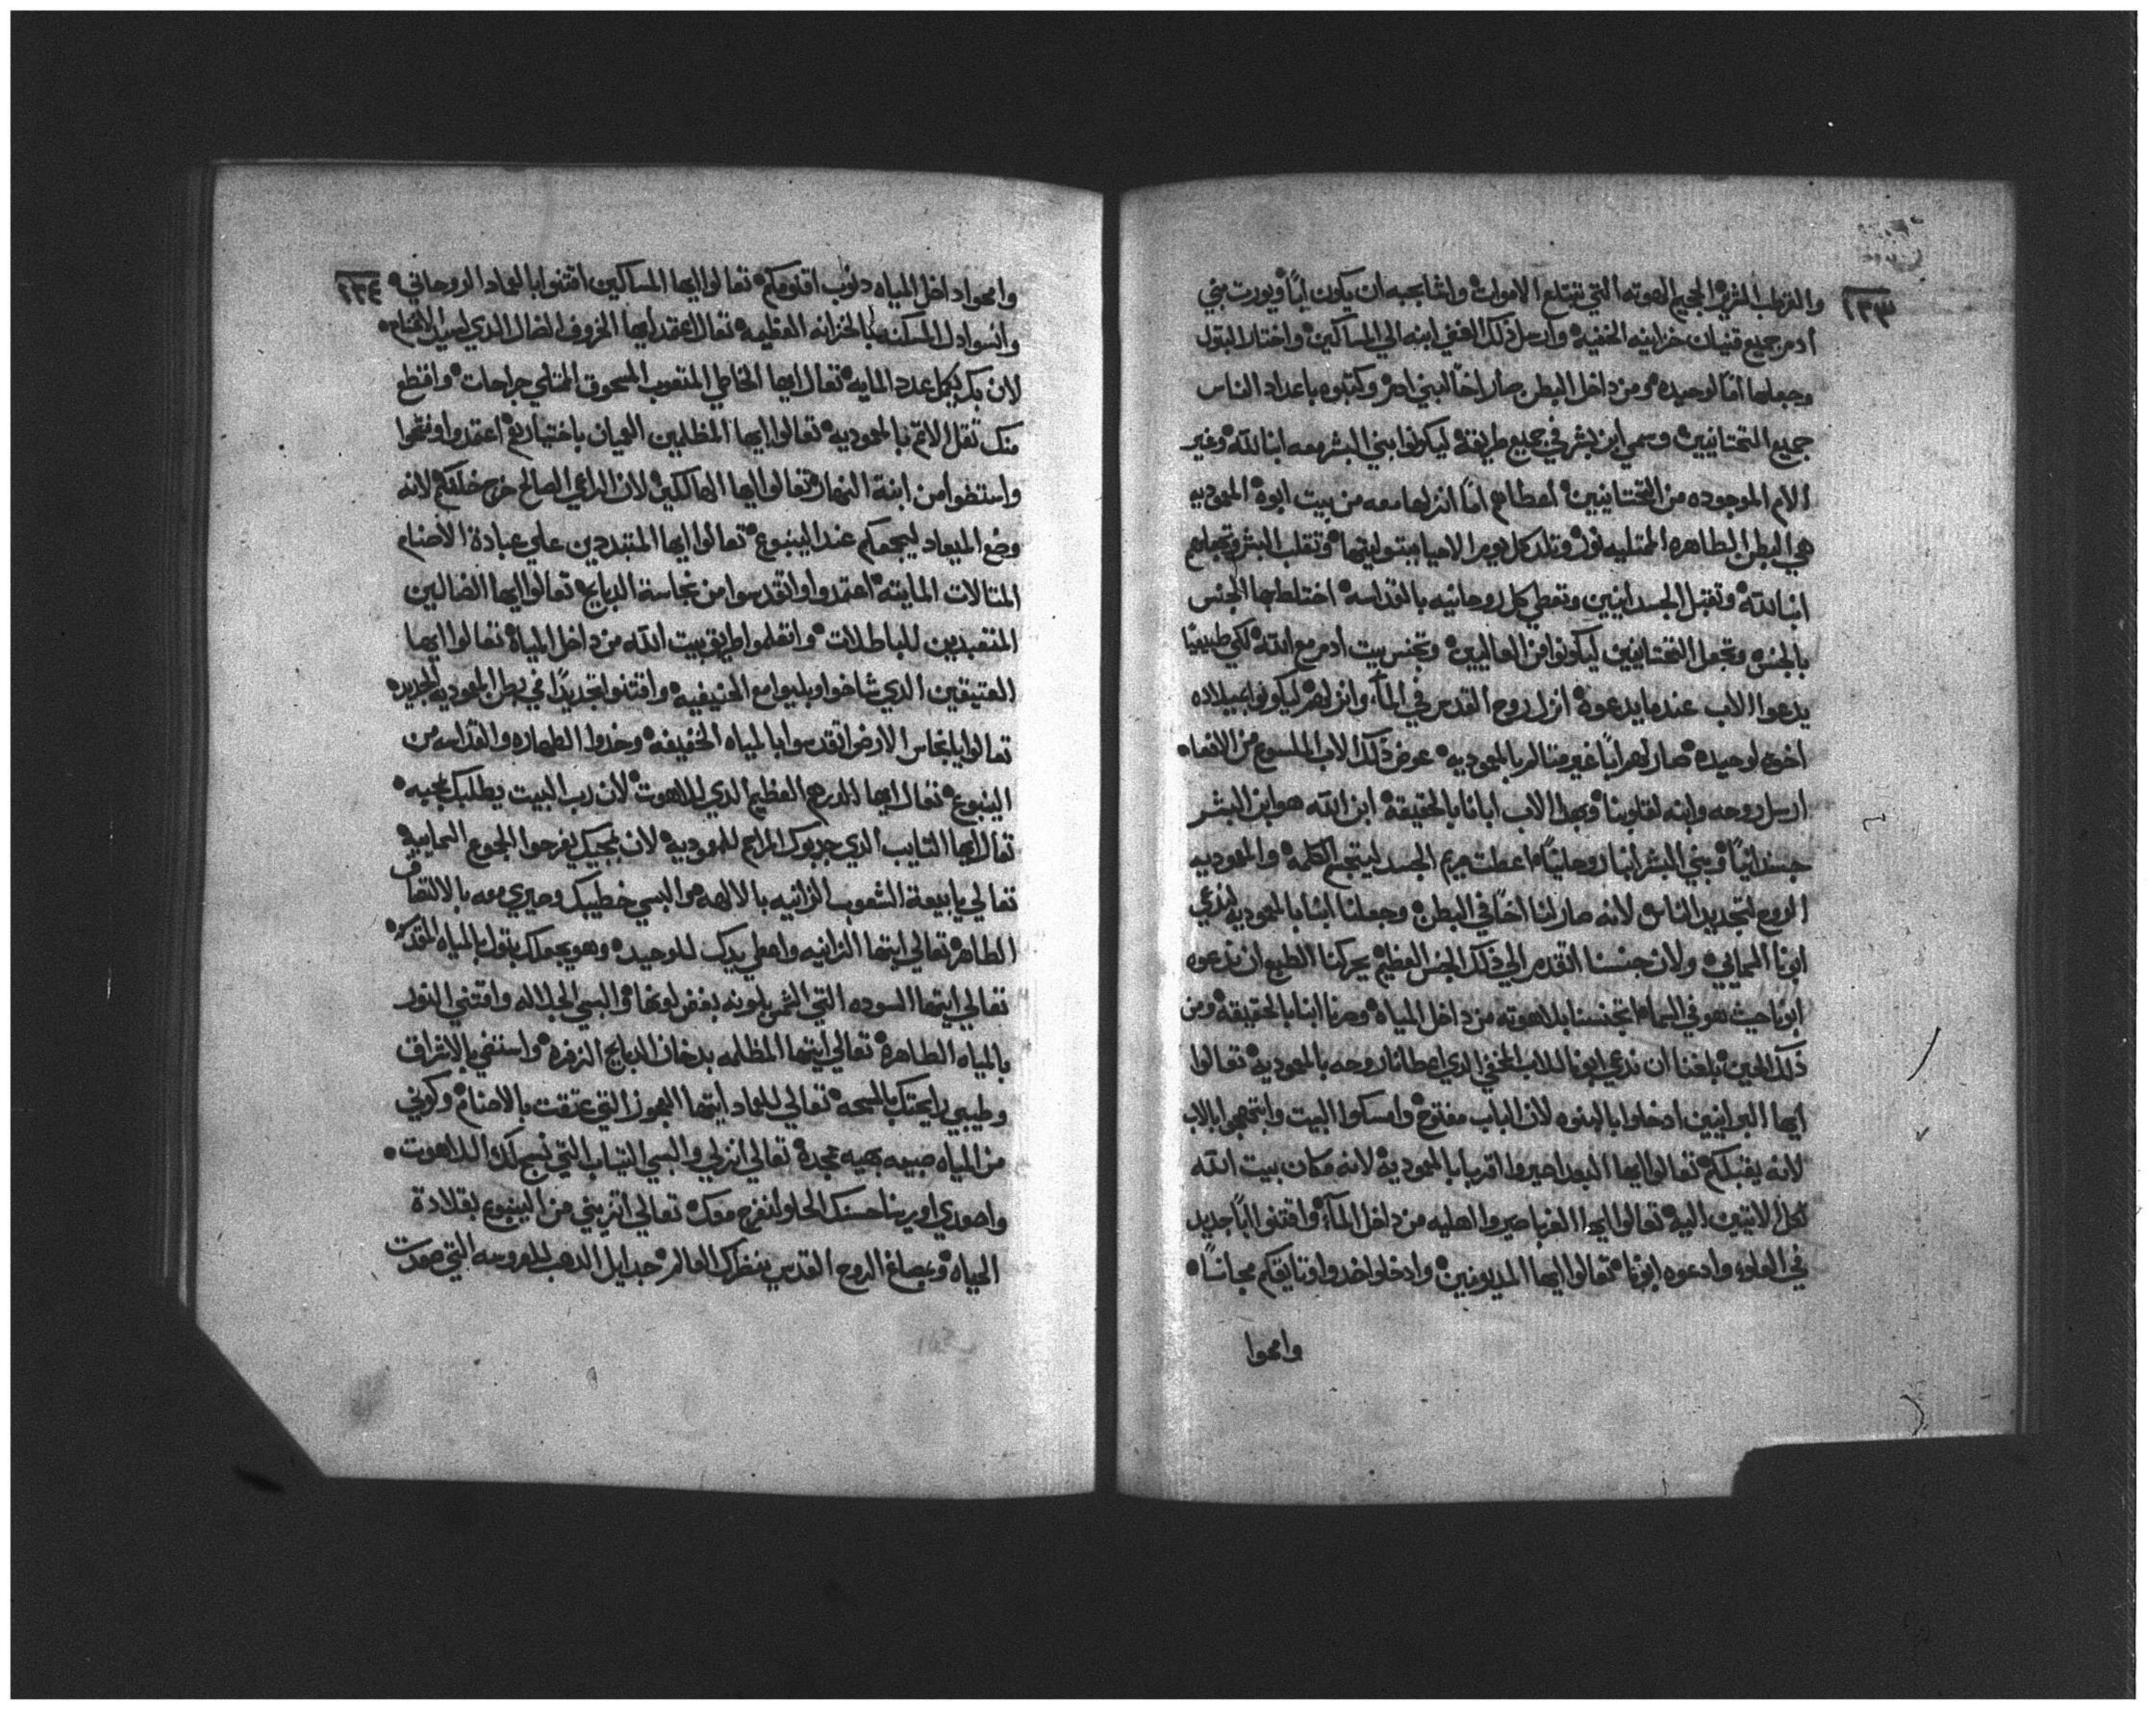 ٢٣٣
والتراب المرين الجحيم الهوته التي تبتلع الاموات واشا بحبه ان يكون ابًا ويورث بني
ادم من جميع قنيان خزاينه الخفيه وارسل ذلك الغني ابنه الي المساكين واختار البتول
وجعلها امًا لوحيده ومن داخل البطن صار اخًا لبني ادم وكتبوه باعداد الناس
جميع التحتانيين وسمي ابن بشر في جميع طريقة ليكونوا بني البشر معه ابنا لله وغير
الام الموجوده من التحتانيين اعطاهم امًا انزلها معه من بيت ابوه المعموديه
هي البطن الطاهره الممتليه نور وتلد كل يوم الاحيا ببتوليتها وتقلب البشر وتجعلهم
ابنا لله وتقبل الجسدانيين وتعطي كل روحانيه بالقداسه اختلط بها الجنس
بالجنس وتجعل التحتانيين ليكونوا من العاليين وتجنس بيت ادم مع الله لكي طبيعيًا
يدعوا الاب عندما يدعوه انزل روح القدس في المآء وانزلهم ليكونوا بميلاده
اخوه لوحيده صار لهم ابًا غير متالم بالمعموديه عوض ذلك الاب الملسوع من الافعا
ارسل روحه وابنه لقلوبنا وبهدا الاب ابانا بالحقيقة ابن الله هو ابن البشر
جسدانيًا وبني البشر ابنا روحانيًا اعطت مريم الجسد ليتجسم الكلمه والمعموديه
الروح لتجديد الناس لانه صار لنا اخًا في البطن وجعلنا ابنا بالمعموديه لندعي
ابونا السماني ولان جنسنا القدم الي ذلك الجنس العظيم يحركنا الطبع ان ندعوه
ابونا حيث هو في السماء اتجنسنا بلاهوته من داخل المياه وصرنا ابنا بالحقيقة ومن
ذلك الحين بلغنا ان ندعي ابونا للاب الخفي الدي اعطانا روحه بالمعموديه تعالوا
ايها البرانيين ادخلوا بالبنوه لان الباب مفتوح وامسكوا البيت وابتهجوا بالاب
لانه يقبلكم تعالوا ايها البعدا صيروا اقربا بالمعموديه لانه مكان بيت الله
لكل الاتيين اليه تعالوا ايها الغربا صيروا اهليه من داخل المآء واقتنوا ابًا جديد
في العلوه وادعوه ابونا تعالوا ايها المديونين وادخلوا خدوا وتايقكم مجانسًا
وامحوا
٢٣٤
وامحوا داخل المياه دنوب اقنومكم تعالوا ايها المساكين اقتنوا بالعماد الروحاني
وانسوا دل المسكنه بالخزانه العظيمه تعال اعتمد ايها الخروف الضال الدي لصيد الاغنام
لان بك يكمل عدد المايه تعال ايها الخاطي المتعوب المسحوق الممتلي جراحات واقطع
منك ثقل الاثم بالمعموديه تعالوا ايها المظلمين العميان باختياركم اعتمدوا وتفتحوا
واستضوا من ابنة النهار تعالوا ايها الهالكين لان الراعي الصالح خرج خلفكم لانه
وضع الميعاد ليجمعكم عند الينبوع تعالوا ايها المتبددين علي عبادة الاصنام
المتالات المايته اعتمدوا واتقدسوا من نجاسة الدبايح تعالوا ايها الضالين
المتعبدين للباطلات واتعلموا طريق بيت الله من داخل المياه تعالوا ايها
العتيقين الدي شاخوا وبليوا مع الحنيفيه واقتنوا تجديدًا في بطن المعموديه الجديده
تعالوا يا نجاس الارض اتقدسوا بالمياه الخفيفه وخدوا الطهاره والقداسه من
الينبوع تعال ايها الدرهم العظيم الدي لللاهوت لان رب البيت يطلبك بمحبه
تعال ايها التايب الدي جدبوك المراحم للمعموديه لان بمجيك يفرحوا الجموع السماييه
تعالي يا بيعة الشعوب الزانيه بالالهه والبسي خطيبك وصيري معه بالالتصاق
الطاهر تعالي ايتها الزانيه واعطي يدك للوحيد وهو يجعلك بتول بالمياه المقدسه
تعالي ايتها السوده التي الشمس بلونه بغض لونها والبسي الجلاله واقتني النور
بالمياه الطاهره تعالي ايتها المظلمه بدخان الدبايح الزفره واستضي بالاشراق
وطيبي رايحتك بالمسحه تعالي للعماد ايتها العجوز التي عتقت بالاصنام وكوني
من المياه صبيه بهيه ممجده تعالي انزلي والبسي التياب التي نسج لك اللاهوت
واصعدي اورينا حسنك الحلو لنفرح معك تعالي اتزيني من الينبوع بقلادة
الحياه وبصاغ الروح القدس ينظرك العالم جدايل الدهب للعروسه التي صعدت